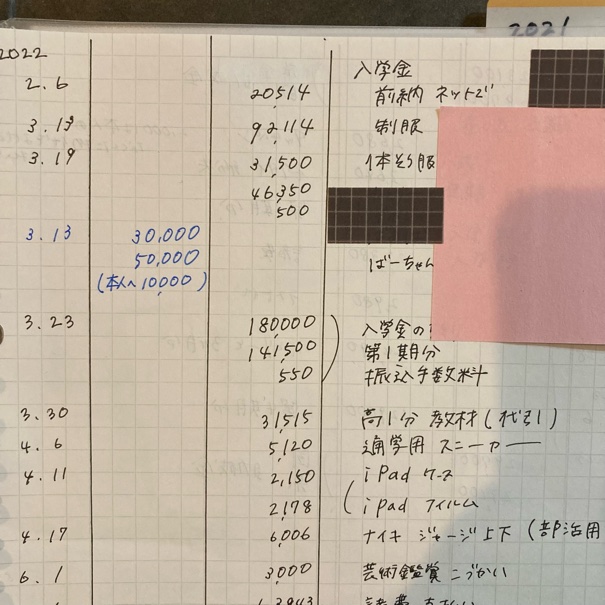 2021
2022
入学金
2.6 20514 前納 ネットで
3.13 92,114 制服
3.19 31,500 体そう服
46,350
500
3.13 30,000
50,000 ばーちゃん
(本人へ10,000)
3.23 180,000 入学金の
141,500 第1期分
550 振込手数料
3.30 31515 高1分 教材(代引)
4.6 5,120 通学用 スニーカー
4.11 2,150 iPad ケース
2,178 iPad フィルム
4.17 6,006 ナイキ ジャージ上下 (部活用
6.1 3,000 芸術鑑賞 こづかい